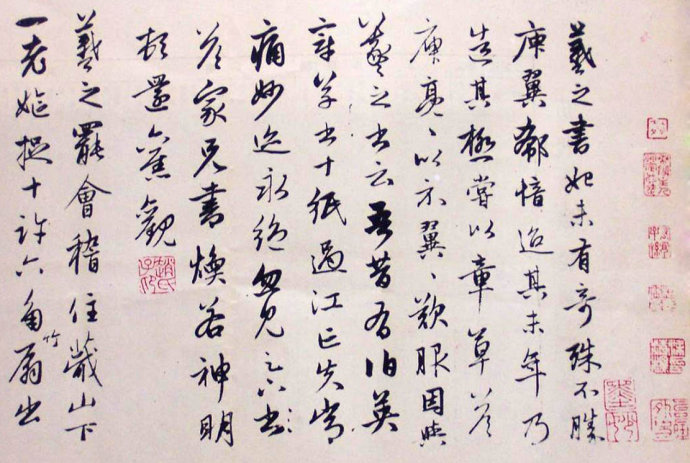 羲之書始未有奇殊不勝
庾翼郗愔迨其末年乃
造其極嘗以章草答
庾亮、以示翼、歎服因與
羲之書云吾昔有伯英
章草書十紙過江亡失常
痛妙迹永絕忽見足下書
答家兄書煥若神明
頓還舊觀
趙氏子昂
羲之罷會稽住蕺山下
一老嫗捉十許六角竹扇出